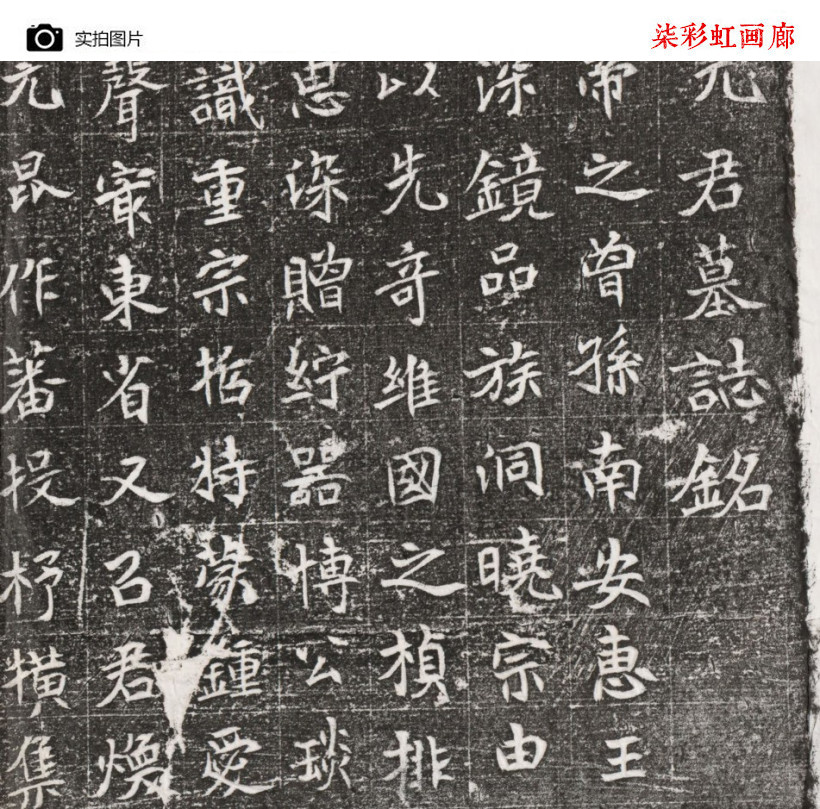 实拍图片
柒彩虹画廊
元君墓誌銘
帝之曾孫南安惠王
深鏡品族洞曉宗由
以先奇維國之楨排
思深贈紵器博公琰
識重宗哲特蒙鍾愛
聲㝡東省又召君煥
元昆作蕃投杼橫集